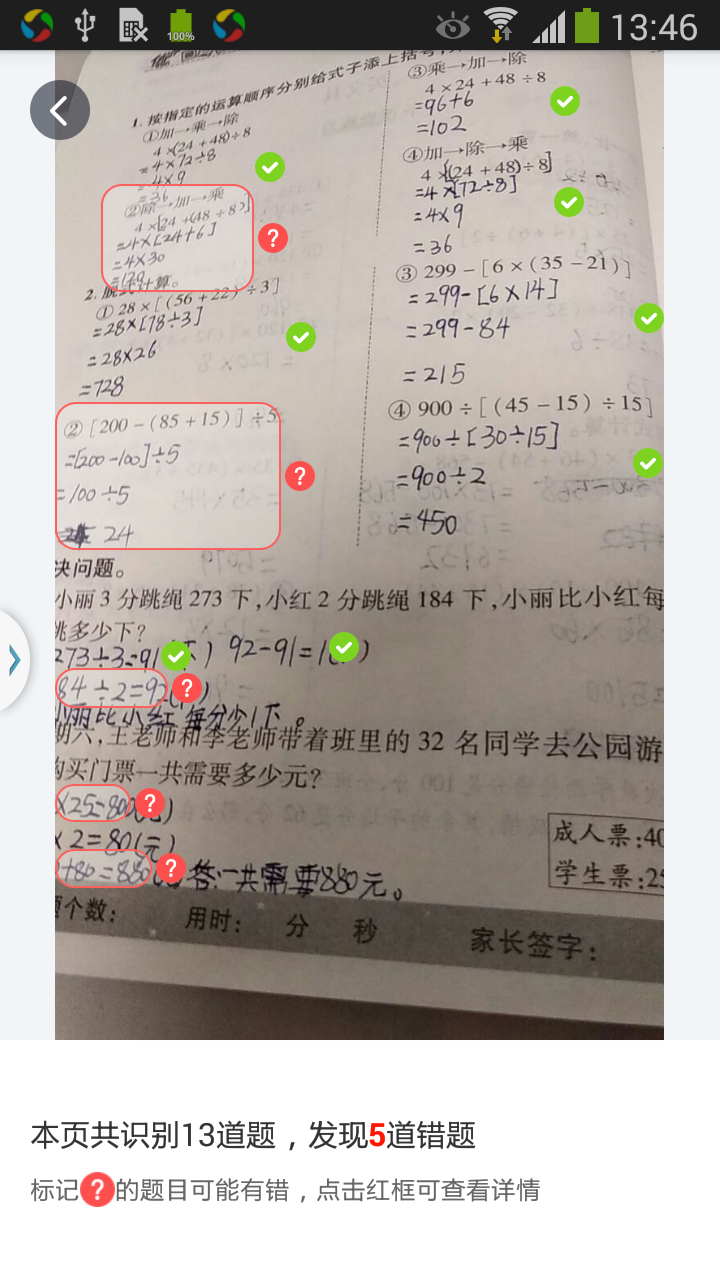 100%
13:46
1. 按指定的运算顺序分别给式子添上括号
①加→乘→除
4×(24+48)÷8
=4×72÷8
=4×9
=36
②除→加→乘
4×[24+(48÷8)]
=4×[24+6]
=4×30
=120
③乘→加→除
4×24+48÷8
=96+6
=102
④加→除→乘
4×[(24+48)÷8]
=4×[72÷8]
=4×9
=36
2. 脱式计算。
①28×[(56+22)÷3]
=28×[78÷3]
=28×26
=728
②[200-(85+15)]÷5
=[200-100]÷5
=100÷5
24
③299-[6×(35-21)]
=299-[6×14]
=299-84
=215
④900÷[(45-15)÷15]
=900÷[30÷15]
=900÷2
=450
决问题。
小丽3分跳绳273下,小红2分跳绳184下,小丽比小红每
跳多少下?
273÷3=91(下) 92-91=1
84÷2=92
小丽比小红每分少1下。
期六,王老师和李老师带着班里的32名同学去公园游
购买门票一共需要多少元?
×25=800(元)
×2=80(元)
+80=880 答:一共需要880元。
成人票:40
学生票:25
题个数: 用时: 分 秒 家长签字:
本页共识别13道题，发现5道错题
标记?的题目可能有错，点击红框可查看详情